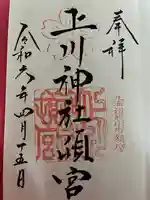 奉拝
上川神社頓宮
令和六年四月十五日